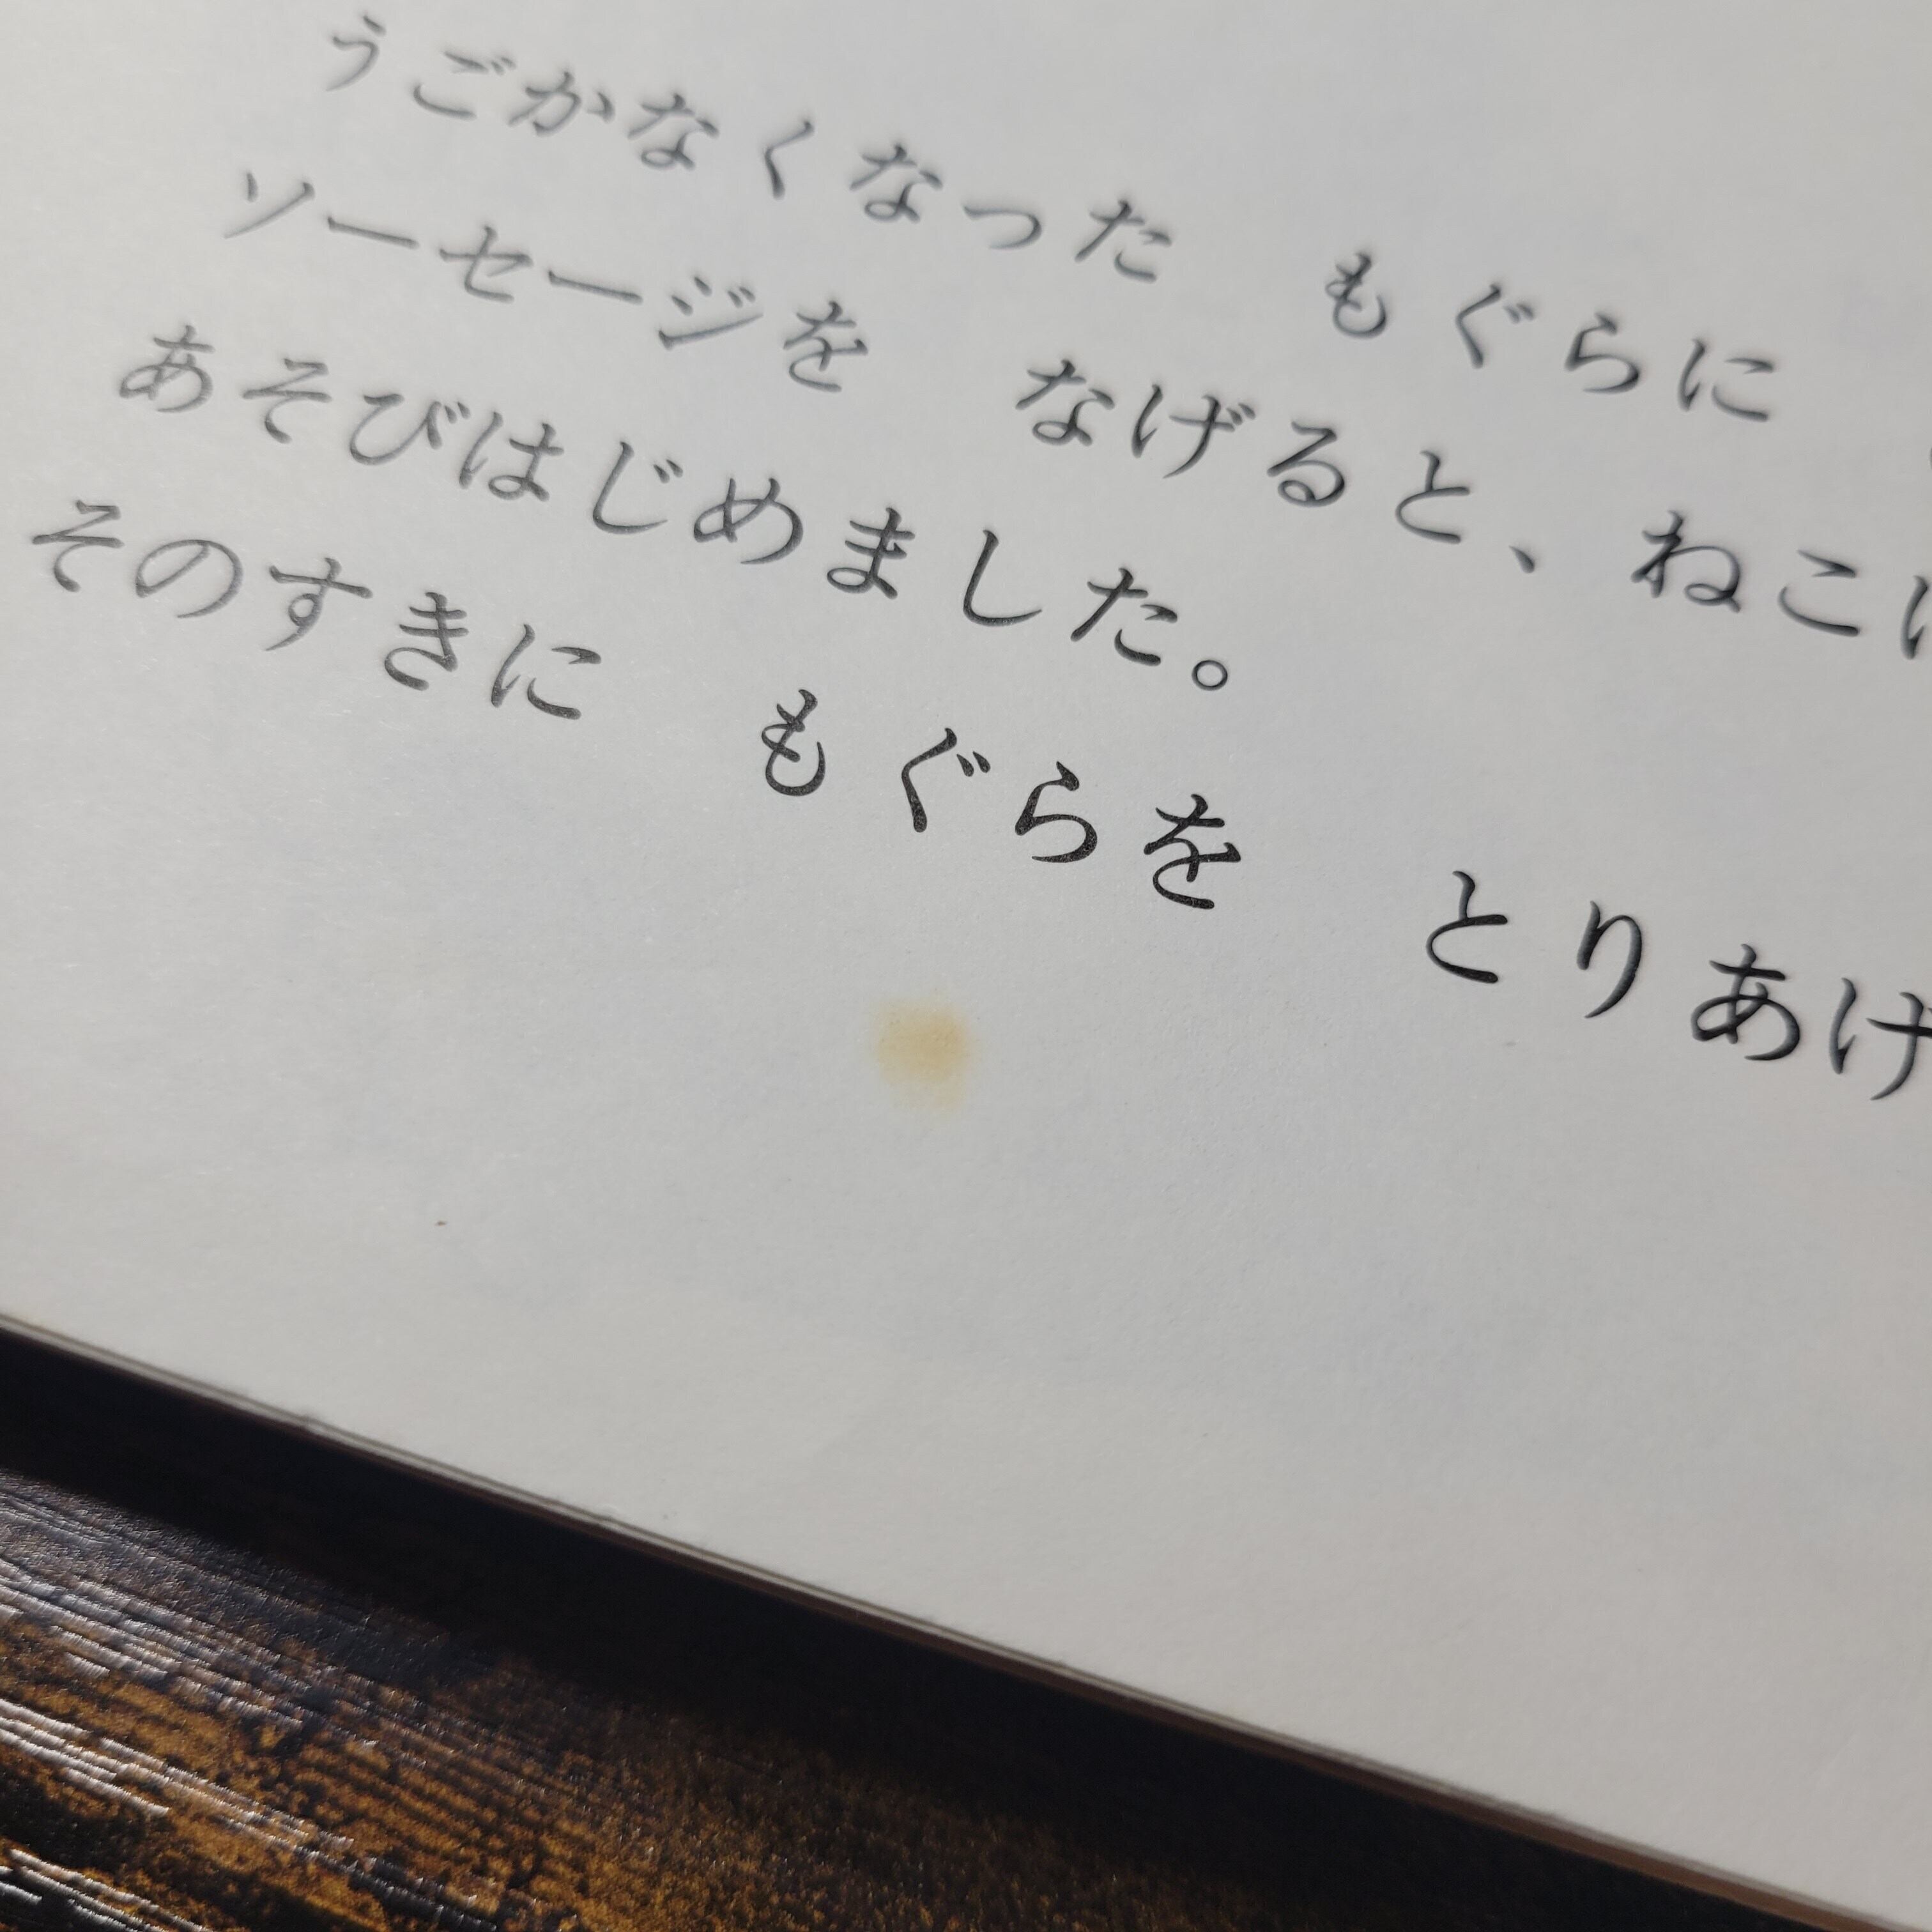 うごかなくなった　もぐらに
ソーセージを　なげると、ねこ
あそびはじめました。
そのすきに　もぐらを　とりあげ